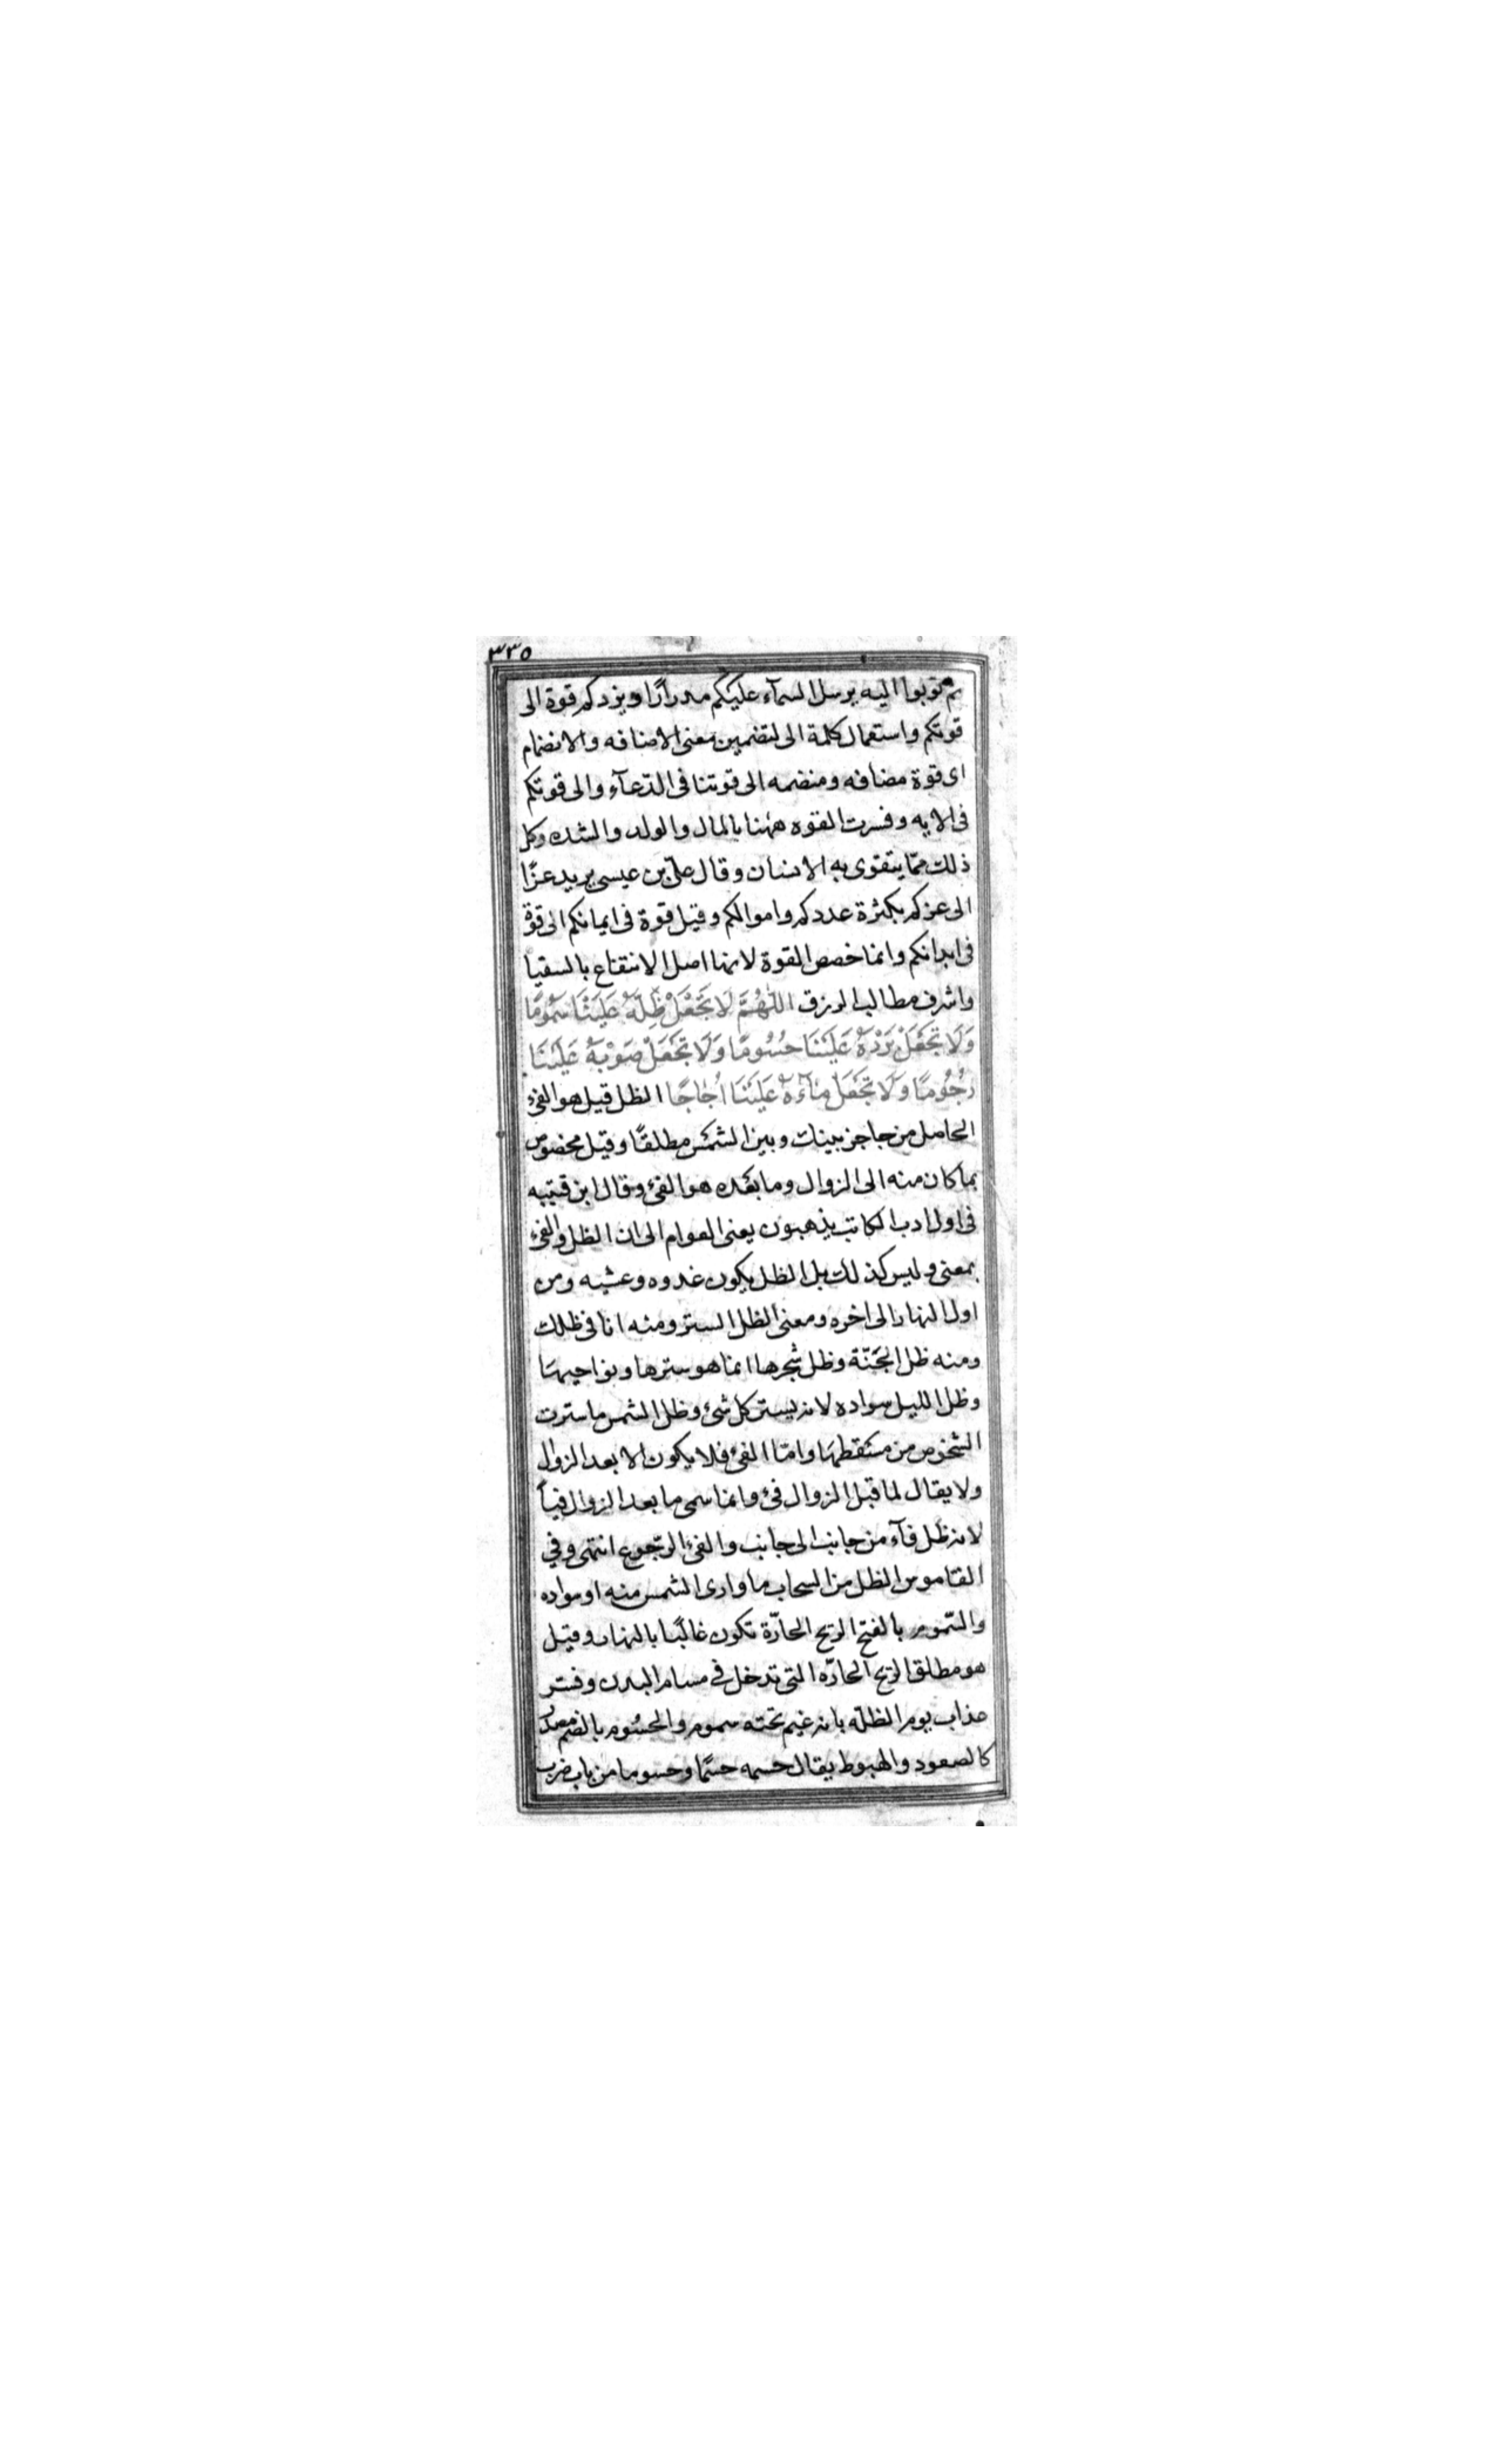 ٣٣٥
ثم توبوا اليه يرسل السمآء عليكم مدرارًا ويزدكم قوة الى
قوتكم واستعمال كلمة الى لتضمين معنى الاضافه والانضمام
اى قوة مضافه ومنضمه الى قوتنا فى الدّعآء والى قوتكم
فى الايه وفسرت القوه ههنا بالمال والولد والشده وكل
ذلك ممّا يتقوى به الانسان وقال علىّ بن عيسى يريد عزًّا
الى عزكم بكثرة عددكم واموالكم وقيل قوة فى ايمانكم الى قوة
فى ابدانكم وانما خصص القوة لانها اصل الانتفاع بالسقيا
واشرف مطالب الرزق اللّٰهُمَّ لَا تَجْعَلْ ظِلَّهُ عَلَيْنَا سَمُومًا
وَلَا تَجْعَلْ بَرْدَهُ عَلَيْنَا حُسُومًا وَلَا تَجْعَلْ صَوْبَهُ عَلَيْنَا
رُجُومًا وَلَا تَجْعَلْ مَآءَهُ عَلَيْنَا اُجَاجًا الظل قيل هو الفئ
الحاصل من حاجز بينك وبين الشمس مطلقًا وقيل مخصوص
بما كان منه الى الزوال وما بعده هو الفئ وقال ابن قتيبه
فى اول ادب الكاتب يذهبون يعنى العوام الى ان الظل والفئ
بمعنى وليس كذلك بل الظل يكون غدوه وعشيه ومن
اول النهار الى اخره ومعنى الظل الستر ومنه انا فى ظلك
ومنه ظل الجَنّة وظل شجرها انما هو سترها ونواحيها
وظل الليل سواده لانه يستر كل شئ وظل الشمس ما سترت
الشخوص من مسقطها وامّا الفئ فلا يكون الا بعد الزوال
ولا يقال لما قبل الزوال فئ وانما سمى ما بعد الزوال فيأً
لانه ظل فآء من جانب الى جانب والفئ الرّجوع انتهى وفي
القاموس الظل من السحاب ما وارى الشمس منه او سواده
والسّموم بالفتح الريح الحارّة تكون غالبًا بالنهار وقيل
هو مطلق الريح الحارّه التى تدخل فى مسام البدن وفسّر
عذاب يوم الظلّه بانه غيم تحته سموم والحسُوم بالضم مصدر
كالصعود والهبوط يقال حسمه حسمًا وحسوما من باب ضرب